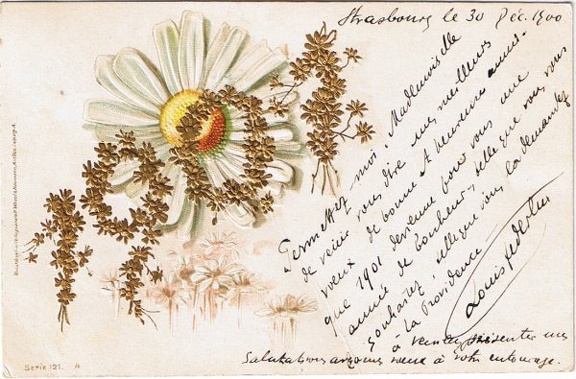 Strasbourg le 30 Déc. 1900
1901
Permettez moi, Mademoiselle
de venir vous dire mes meilleurs
vœux de bonne et heureuse année.
que 1901 devienne pour vous une
année de bonheur, telle que vous vous
souhaitez, telle que vous la demandez
à la Providence
Louis
à
Salutations
vœux à votre entourage.
Serie 121.